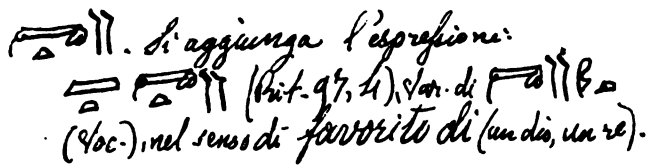 . Si aggiunga l'espressione:
(Rit. 97, 4), var. di
(Voc.), nel senso di favorito di (un dio, un re).